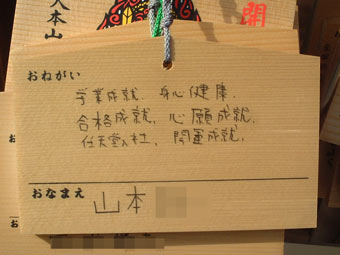 大本山
開
おねがい
学業成就、身心健康、
合格成就、心願成就、
任天堂入社、開運成就、
おなまえ
山本